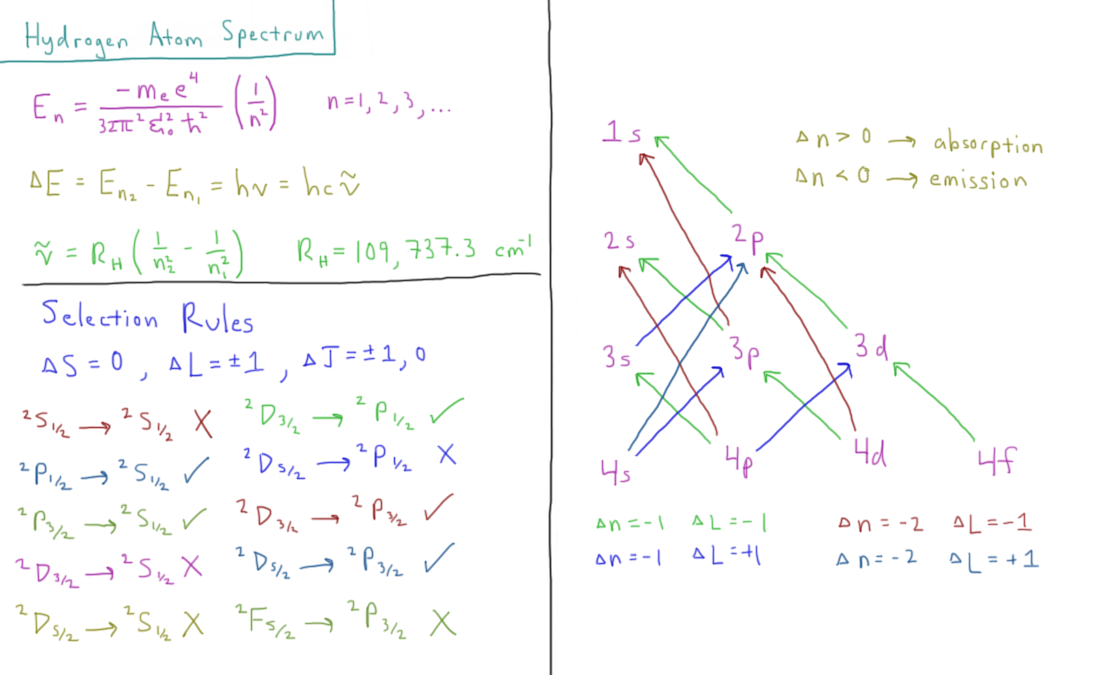 Hydrogen Atom Spectrum
Eₙ = -mₑe⁴ / 32π²ε₀²ħ² (1/n²)   n=1, 2, 3, ...
ΔE = Eₙ₂ - Eₙ₁ = hν = hcν̃
ν̃ = R_H (1/n₂² - 1/n₁²)   R_H = 109,737.3 cm⁻¹
Selection Rules
ΔS = 0 , ΔL = ±1 , ΔJ = ±1, 0
²S₁/₂ → ²S₁/₂ X   ²D₃/₂ → ²P₁/₂ ✓
²P₁/₂ → ²S₁/₂ ✓   ²D₅/₂ → ²P₁/₂ X
²P₃/₂ → ²S₁/₂ ✓   ²D₃/₂ → ²P₃/₂ ✓
²D₃/₂ → ²S₁/₂ X   ²D₅/₂ → ²P₃/₂ ✓
²D₅/₂ → ²S₁/₂ X   ²F₅/₂ → ²P₃/₂ X
1s
Δn > 0 → absorption
Δn < 0 → emission
2s 2p
3s 3p 3d
4s 4p 4d 4f
Δn = -1 ΔL = -1   Δn = -2 ΔL = -1
Δn = -1 ΔL = +1   Δn = -2 ΔL = +1